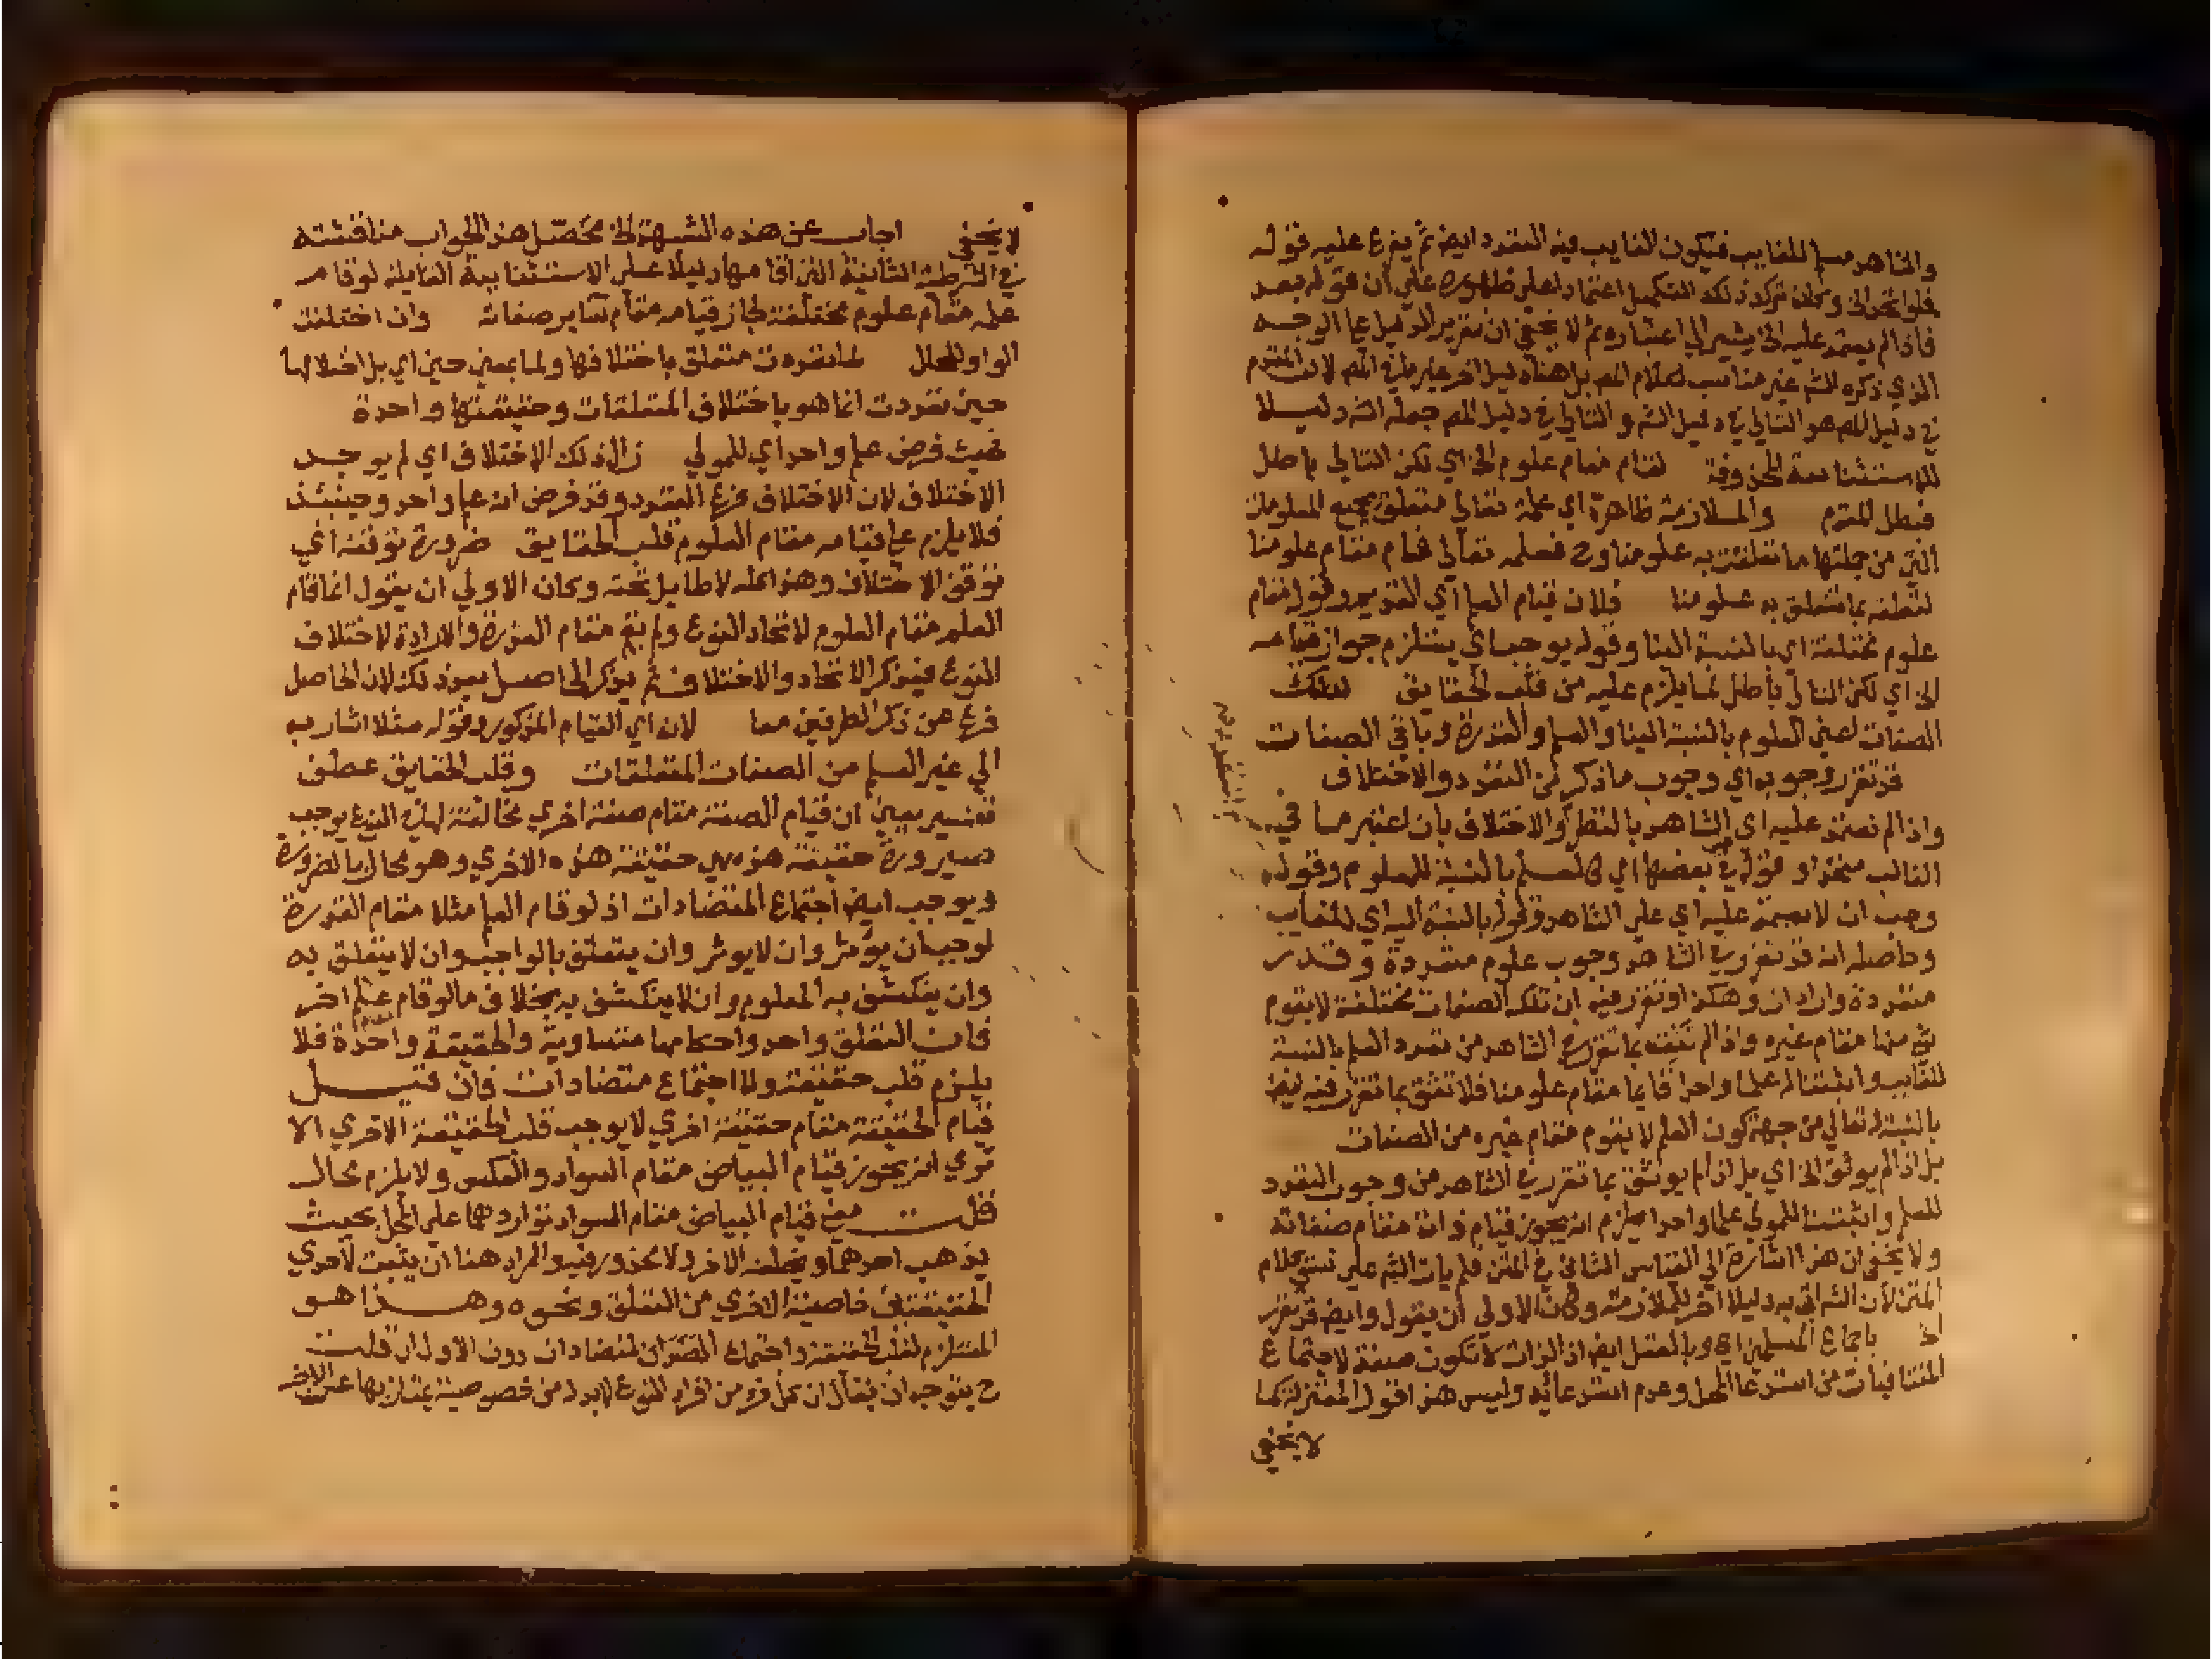 والشاهد مسا للغايب فيكون الغايب فيه التعدد ايضا ثم يفرع عليه قوله
فلو اتحد الخ وكان تركه ذلك التكميل اعتمادا على ظهوره على ان قوله بعد
فاذا لم يعتمد عليه الخ يشير الي اعتباره ثم لا يخفى ان تقرير الدليل علي الوجه
الذي ذكره الشم غير مناسب لكلام المص بل هناه دليل اخر غير ما في المص لان المقدم
في دليل المص هو التالي في دليل الشم والتالي في دليل المص جعله الشم دليلا
للاستثنائية المحذوفة لقام مقام علوم الخ اي لكن التالي باطل
فبطل المقدم والملازمة ظاهرة اي علمه تعالي متعلق بجميع المعلومات
التي من جملتها ما تعلقت به علومنا وح فعلمه تعالي قام مقام علومنا
لتعلقه بما تتعلق به علومنا فلان قيام العلم اي القديم وقوله مقام
علوم مختلفة اي بالنسبة الينا وقوله يوجب اي يستلزم جواز قيامه
الخ اي لكن التالي باطل لما يلزم عليه من قلب الحقايق لتلك
الصفات اعني العلوم بالنسبة الينا والعلم والقدرة وباقي الصفات
قد تقرر وجوبه اي وجوب ما ذكر من التعدد والاختلاف
واذا لم نعتمد عليه اي الشاهد بالنظر والاختلاف بان اعتبرهما في
الغالب متحدا وقوله في بعضها اي كالعلم بالنسبة للعلوم وقوله
وجب ان لا نعتمد عليه اي علي الشاهد وقوله بالنسبة اليه اي للغايب
وحاصله انه قد تقرر في الشاهد وجوب علوم متعددة وقدر
متعددة وارادات وهكذا وتقرر فيه ان تلك الصفات مختلفة لا يقوم
شي منها مقام غيره واذا لم تثق بما تقرر في الشاهد من تعدد العلم بالنسبة
للغايب واثبتنا له علما واحدا قايما مقام علومنا فلا تثق بما تقرر فيه ايضا
بالنسبة له تعالي من جهة كون العلم لا يقوم مقام غيره من الصفات
بل اذا لم يوثق الخ اي بل اذا لم يوثق بما تقرر في الشاهد من وجوب التعدد
للعلم واثبتنا للمولي علما واحدا يلزم انه يجوز قيام ذاته مقام صفاته
ولا يخفى ان هذا اشارة الي القياس الثاني في المتن فلم يات الشم علي نسق كلام
المتن لان الشم اتي به دليلا اخر للملازمة وكان الاولي ان يقول وايضا قد تقرر
الخ باجماع المسلمين اي وبالعقل ايضا اذ الذات لا تكون صفة لاجتماع
المتنافيات من استدعا المحل وعدم استدعائه وليس هذا قول المعتزلة كما
لا يخفى
لا يخفى اجاب عن هذه الشبهة الخ محصل هذا الجواب مناقشته
في الشرطية الثانية التي اقامها دليلا علي الاستثنائية القايلة لو قام
علمه مقام علوم مختلفة لجاز قيامه مقام سائر صفاته وان اختلفت
الواو للحال لما تعددت متعلق باختلافها ولما بمعني حين اي بل اختلافها
حين تعددت انما هو باختلاف المتعلقات وحقيقتها واحدة
فحيث فرض علم واحد اي للمولي زال ذلك الاختلاف اي لم يوجد
الاختلاف لان الاختلاف فرع التعدد وقد فرض انه علم واحد وحينئذ
فلا يلزم علي قيامه مقام العلوم قلب الحقايق ضرورة توقفه اي
توقف الاختلاف وهذا كله لا طايل تحته وكان الاولي ان يقول انما قام
العلم مقام العلوم لاتحاد النوع ولم يقم مقام القدرة والارادة لاختلاف
النوع فيذكر الاتحاد والاختلاف ثم يذكر الحاصل بعد ذلك لان الحاصل
فرع عن ذكر الطرفين معا لان اي القيام المذكور وقوله مثلا اشار به
الي غير العلم من الصفات المتعلقات وقلب الحقايق عطف
تفسير يعني ان قيام الصفة مقام صفة اخري مخالفة لها في النوع يوجب
صيرورة حقيقة هذه هي حقيقة هذه الاخري وهو محال بالضرورة
ويوجب ايضا اجتماع المتضادات اذ لو قام العلم مثلا مقام القدرة
لوجب ان يوثر وان لا يوثر وان يتعلق بالواجب وان لا يتعلق به
وان ينكشف به المعلوم وان لا ينكشف به بخلاف ما لو قام علم مقام علم اخر
فان التعلق واحد واحكامها متساوية والحقيقة واحدة فلا
يلزم قلب حقيقة ولا اجتماع متضادات فان قيل
قيام الحقيقة مقام حقيقة اخري لا يوجب قلب الحقيقة الاخري الا
تري انه يجوز قيام البياض مقام السواد والعكس ولا يلزم محال
قلت معني قيام البياض مقام السواد تواردهما علي المحل بحيث
يذهب احدهما ويخلفه الاخر ولا محذور فيه والمراد هنا ان يثبت لاحدي
الحقيقتين خاصية الاخري من التعلق ونحوه وهذا هو
المستلزم لقلب الحقيقة واجتماع المتضادات دون الاول ان قلت
ح يتوجه ان يقال ان كل فرد من افراد النوع لا بد له من خصوصية يمتاز بها عن الاخر